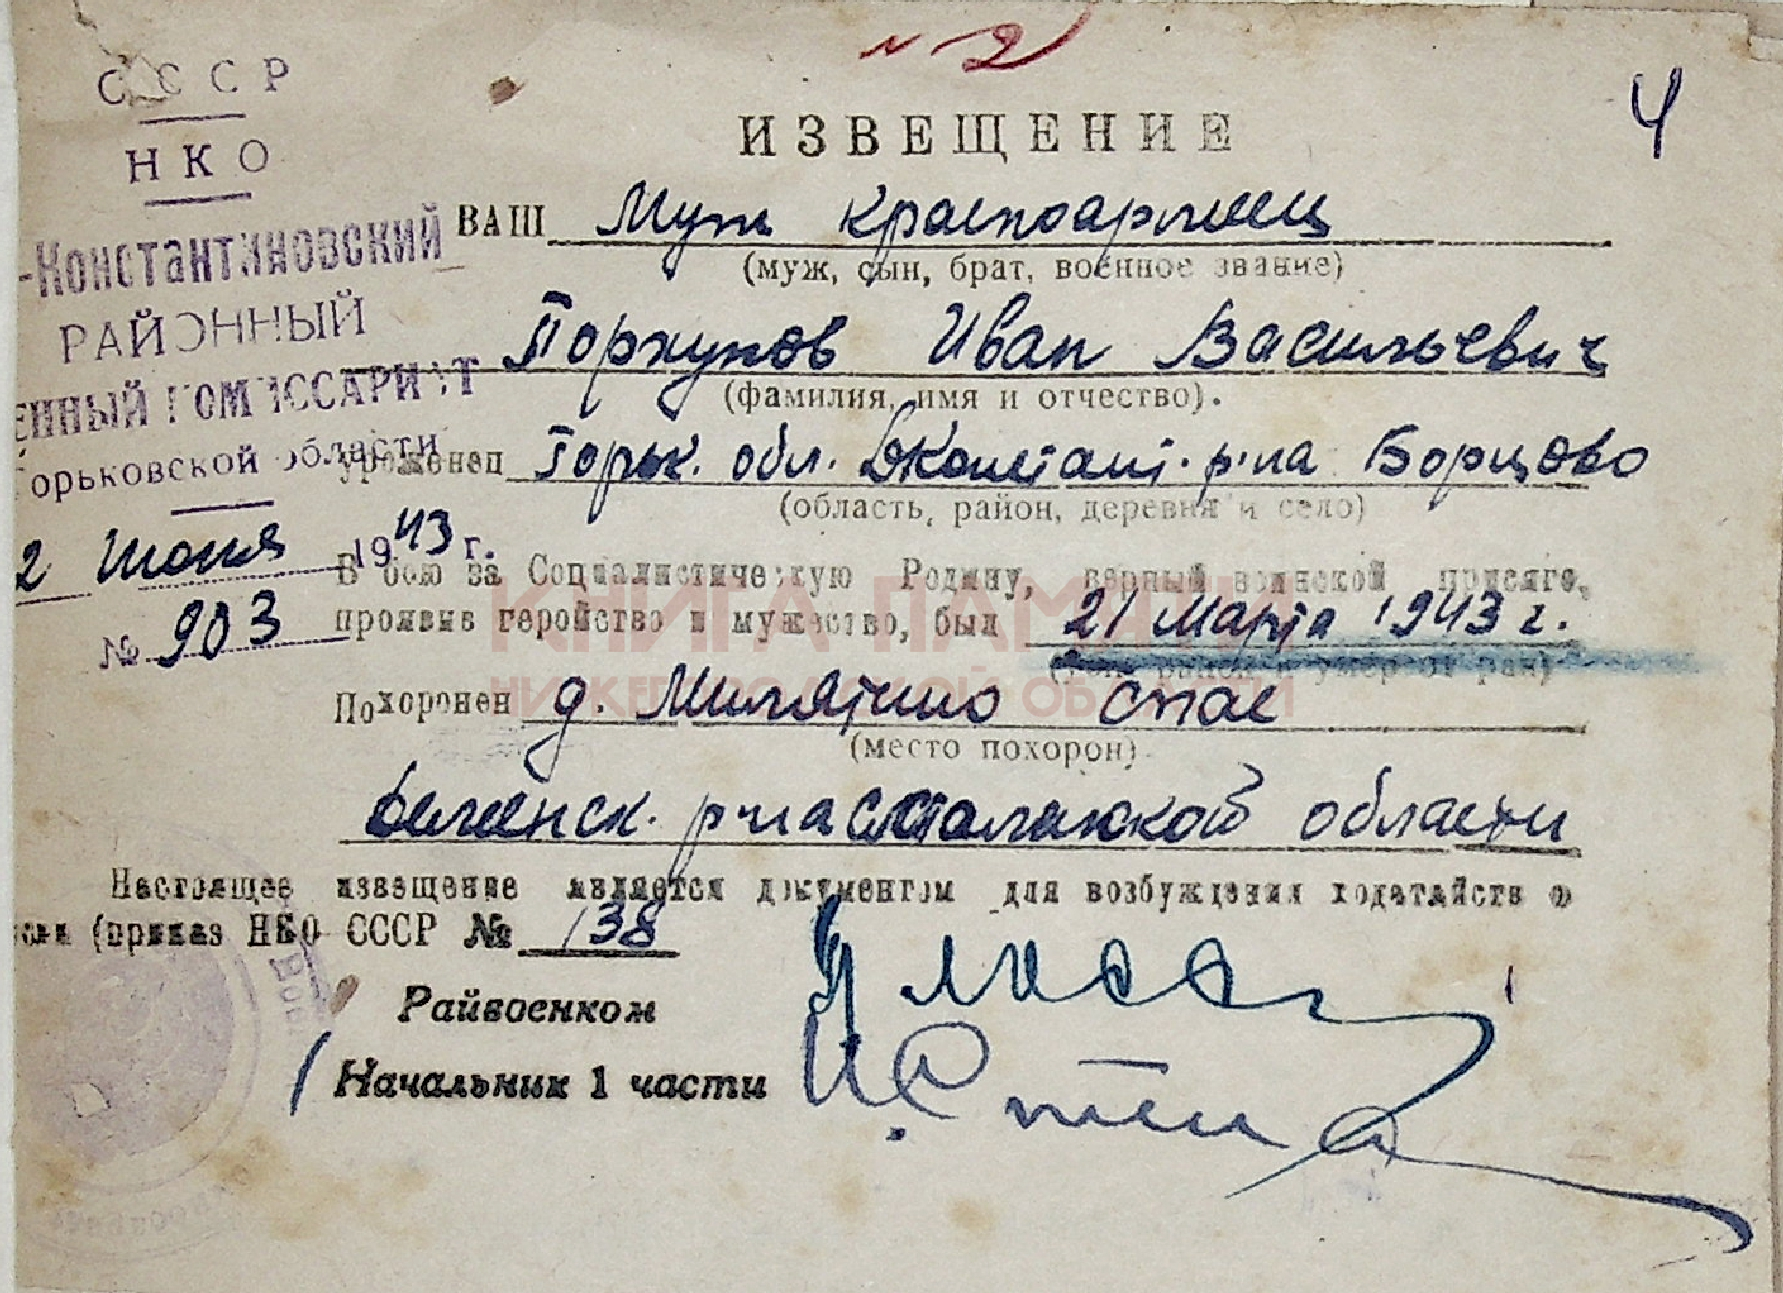 № 2
4
СССР
НКО
-Константиновский
РАЙОННЫЙ
ЕННЫЙ КОМИССАРИАТ
Горьковской области
2 июня 1943 г.
№ 903
ИЗВЕЩЕНИЕ
ВАШ муж красноармеец
(муж, сын, брат, военное звание)
Горкунов Иван Васильевич
(фамилия, имя и отчество).
уроженец Горьк. обл. Дконстант. р-на Борцово
(область, район, деревня и село)
В бою за Социалистическую Родину, верный воинской присяге,
проявив геройство и мужество, был 21 марта 1943 г.
и умер от ран)
Похоронен д. Милятино Спас
(место похорон).
Деменск. р-на Смоленской области
Настоящее извещение является документом для возбуждения ходатайств о
(приказ НКО СССР № 138
Райвоенком
Начальник 1 части
КНИГА ПАМЯТИ
НИЖЕГОРОДСКОЙ ОБЛАСТИ